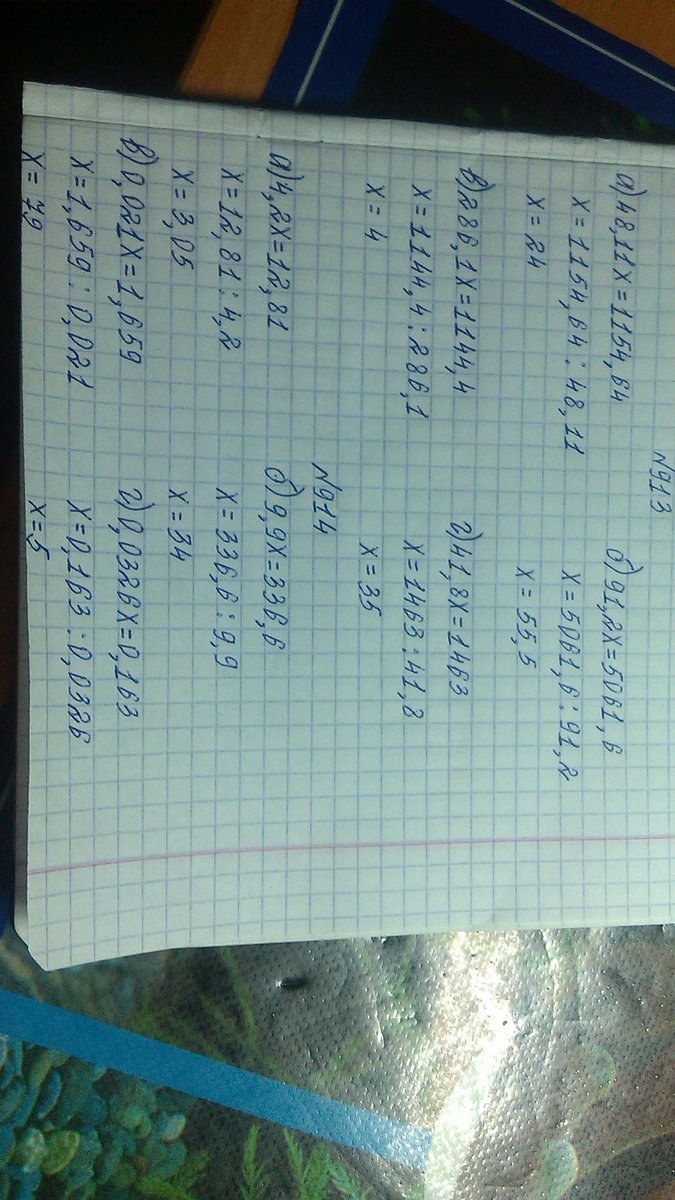 №913
а) 48,11x=1154,64
x=1154,64:48,11
x=24
б) 91,2x=5061,6
x=5061,6:91,2
x=55,5
в) 286,1x=1144,4
x=1144,4:286,1
x=4
г) 41,8x=1463
x=1463:41,8
x=35
№914
а) 4,2x=12,81
x=12,81:4,2
x=3,05
б) 9,9x=336,6
x=336,6:9,9
x=34
в) 0,021x=1,659
x=1,659:0,021
x=79
г) 0,0326x=0,163
x=0,163:0,0326
x=5